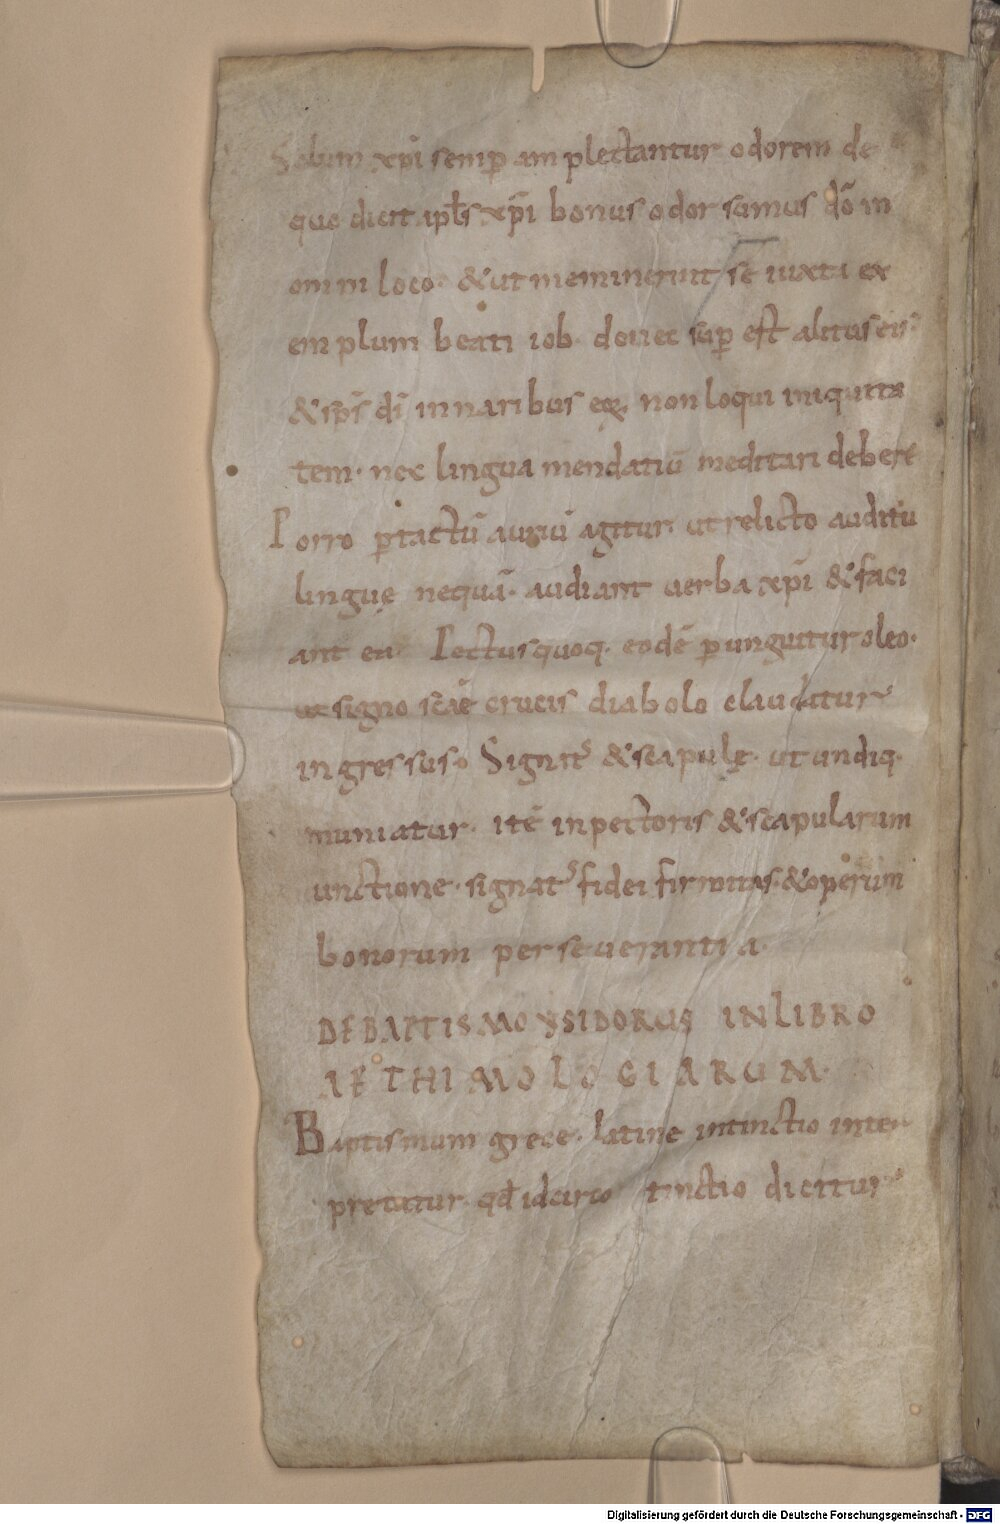 Solum xp̄i semꝑ amplectantur odorem de
quo dicit ap̄ls xp̄i bonus odor sumus dō in
omni loco· &ut meminerint se iuxta ex
emplum beati iob· donec sup̄ est alitus eis·
&sp̄s dī innaribus eoꝝ, non loqui iniquita
tem· nec lingua mendatiū meditari deberē
Porro ꝑtactū auriū agitur· ut relicto auditu
lingue nequā· audiant uerba xp̄i &faci
ant ea· Pectus quoq· eodē ꝑunguitur oleo·
ut signo scāe crucis diabolo claudatur
ingressus· Signat᷒ &scapulę· ut undiq·
muniatur· itē inpectoris &scapularum
unctione· signat᷒ fidei firmitas· &operum
bonorum perseuerantia·
DEBAPTISMO YSIDORUS INLIBRO
AETHIMOLOGIARUM·
Baptismum grece· latine intinctio inter
pretatur· qđ idcirco tinctio dicitur
Digitalisierung gefördert durch die Deutsche Forschungsgemeinschaft - DFG